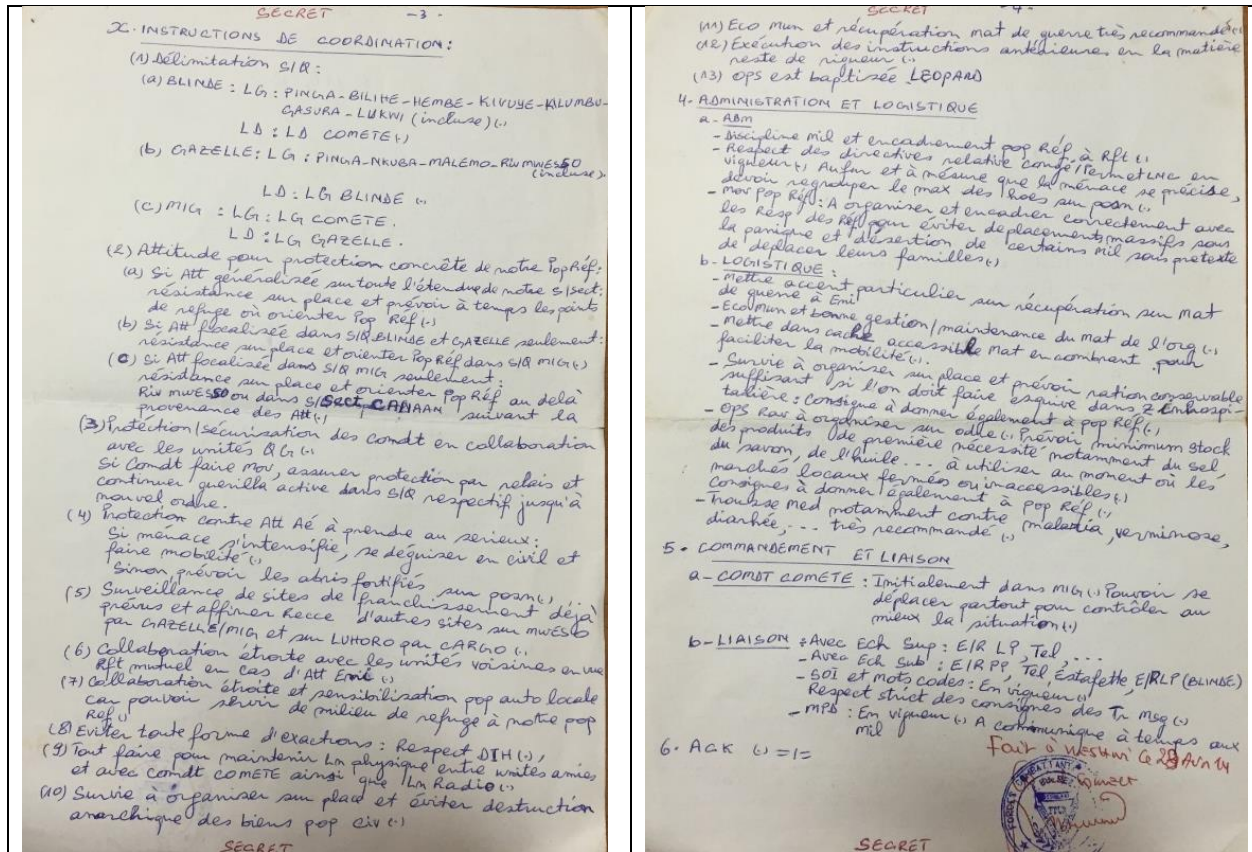 SECRET -3-
X. INSTRUCTIONS DE COORDINATION :
(1) Délimitation S/Q :
(a) BLINDE : LG : PINGA-BILIHE-HEMBE-KIVUYE-KILUMBU-
GASURA-LUKWI (incluse)(.)
LD : LD COMETE(.)
(b) GAZELLE : LG : PINGA-NKUBA-MALEMO-RIV MWESSO
(incluse).
LD : LG BLINDE (.)
(c) MIG : LG : LG COMETE.
LD : LG GAZELLE.
(2) Attitude pour protection concrète de notre Pop Réf :
(a) Si Att généralisée sur toute l'étendue de notre S/Sect :
résistance sur place et prévoir à temps les points
de refuge où orienter Pop Réf (.)
(b) Si Att focalisée dans S/Q BLINDE et GAZELLE seulement :
résistance sur place et orienter Pop Réf dans S/Q MIG(.)
(c) Si Att focalisée dans S/Q MIG seulement :
résistance sur place et orienter Pop Réf au delà
Riv MWESSO ou dans S/Sect CANAAN suivant la
provenance des Att(.)
(3) Protection/sécurisation des comdt en collaboration
avec les unités QG(.)
Si Comdt faire mov, assurer protection par relais et
continuer guerilla active dans S/Q respectif jusqu'à
nouvel ordre.
(4) Protection contre Att Aé à prendre au serieux :
Si menace s'intensifie, se déguiser en civil et
faire mobilité(.)
Sinon prévoir les abris fortifiés sur posn(.)
(5) Surveillance de sites de franchissement déjà
prévus et affiner Recce d'autres sites sur MWESO
par GAZELLE/MIG et sur LUHORO par CARGO (.)
(6) Collaboration étroite avec les unités voisines en vue
Rft mutuel en cas d'Att Eni (.)
(7) Collaboration étroite et sensibilisation pop auto locale
car pouvoir servir de milieu de refuge à notre pop
Réf(.)
(8) Eviter toute forme d'exactions : Respect DIH(.)
(9) Tout faire pour maintenir Ln physique entre unités amies
et avec comdt COMETE ainsi que Ln Radio(.)
(10) Survie à organiser sur place et éviter destruction
anarchique des biens pop civ (.)
SECRET
SECRET -4-
(11) Eco Mun et récupération mat de guerre très recommandé(.)
(12) Exécution des instructions antérieures en la matière
reste de rigueur (.)
(13) OPS est baptisée LEOPARD
4- ADMINISTRATION ET LOGISTIQUE
a - ADM
- Discipline mil et encadrement pop Réf à Rft (.)
- Respect des directives relative congé/Perm et LNC en
vigueur(.) Au fur et à mésure que la ménace se précise,
devoir regrouper le max des hoes sur posn(.)
- Mov Pop Réf : A organiser et encadrer correctement avec
les Resp des Réf pour éviter deplacements massifs sous
la panique et désertion de certains mil sous pretexte
de deplacer leurs familles(.)
b- LOGISTIQUE :
- Mettre accent particulier sur récupération sur mat
de guerre à Eni
- Eco Mun et bonne gestion/maintenance du mat de l'org (.)
- Mettre dans cache accessible mat encombrant pour
faciliter la mobilité(.)
- Survie à organiser sur place et prévoir ration conservable
suffisant si l'on doit faire esquive dans Z inhospi-
talière : Consigne à donner également à pop Réf(.)
- OPS Rav à organiser sur odre(.) Prévoir minimum Stock
des produits de première nécessité notamment du sel
du savon, de l'huile... à utiliser au moment où les
marchés locaux fermés ou inaccessibles(.)
Consignes à donner également à pop Réf (.)
- Trousse med notamment contre malatia, verminose,
diarhée, ... très recommandé (.)
5. COMMANDEMENT ET LIAISON
a- COMDT COMETE : Initialement dans MIG(.) Pouvoir se
déplacer partout pour contrôler au
mieux la situation(.)
b- LIAISON : - Avec Ech Sup : E/R LP, Tel, ...
- Avec Ech Sub : E/R PP, Tel, Estafette, E/RLP (BLINDE)
- SOI et mots codes : En vigueur(.)
Respect strict des consignes des Tr Msg (.)
- MPD : En vigueur (.) A communiqué à temps aux
mil
6. AGK (.) =1=
Fait à
SECRET